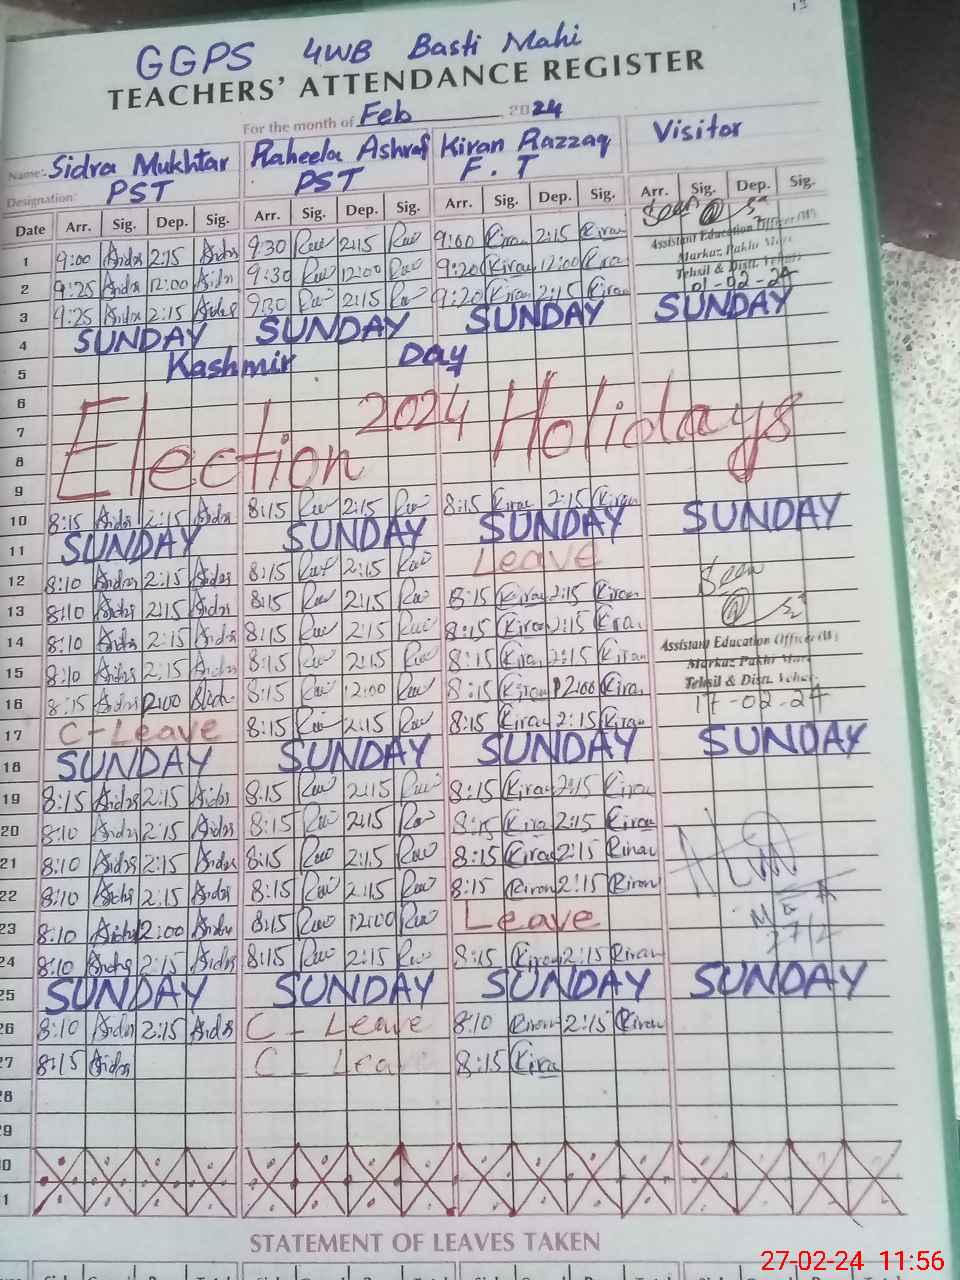 GGPS 4WB Basti Mahi
TEACHERS' ATTENDANCE REGISTER
For the month of Feb 2024
Name:- Sidra Mukhtar Raheela Ashraf Kiran Razzaq Visitor
Designation: PST PST F.T
Date Arr. Sig. Dep. Sig. Arr. Sig. Dep. Sig. Arr. Sig. Dep. Sig. Arr. Sig. Dep. Sig.
Seen
1 9:00 2:15 9:30 2:15 9:00 Kiran 2:15 Kiran Assistant Education Officer (W)
Markaz Pakhi More
2 9:25 12:00 9:30 12:00 9:20 Kiran 12:00 Kiran Tehsil & Distt. Vehari
01-02-24
3 9:25 2:15 9:30 2:15 9:20 Kiran 2:15 Kiran
4 SUNDAY SUNDAY SUNDAY SUNDAY
5 Kashmir Day
6
7 Election 2024 Holidays
8
9
10 8:15 2:15 8:15 2:15 8:15 Kiran 2:15 Kiran
11 SUNDAY SUNDAY SUNDAY SUNDAY
12 8:10 2:15 8:15 2:15 Leave Seen
13 8:10 2:15 8:15 2:15 8:15 Kiran 2:15 Kiran
14 8:10 2:15 8:15 2:15 8:15 Kiran 2:15 Kiran Assistant Education Officer (W)
15 8:10 2:15 8:15 2:15 8:15 Kiran 2:15 Kiran Markaz Pakhi More
Tehsil & Distt. Vehari
16 8:15 12:00 8:15 12:00 8:15 Kiran 12:00 Kiran 17-02-24
17 C-Leave 8:15 2:15 8:15 Kiran 2:15 Kiran
18 SUNDAY SUNDAY SUNDAY SUNDAY
19 8:15 2:15 8:15 2:15 8:15 Kiran 2:15 Kiran
20 8:10 2:15 8:15 2:15 8:15 Kiran 2:15 Kiran
21 8:10 2:15 8:15 2:15 8:15 Kiran 2:15 Kiran
22 8:10 2:15 8:15 2:15 8:15 Kiran 2:15 Kiran
23 8:10 12:00 8:15 12:00 Leave MEA
27/2
24 8:10 2:15 8:15 2:15 8:15 Kiran 2:15 Kiran
25 SUNDAY SUNDAY SUNDAY SUNDAY
26 8:10 2:15 C - Leave 8:10 Kiran 2:15 Kiran
27 8:15 C - Leave 8:15 Kiran
28
29
STATEMENT OF LEAVES TAKEN
27-02-24 11:56